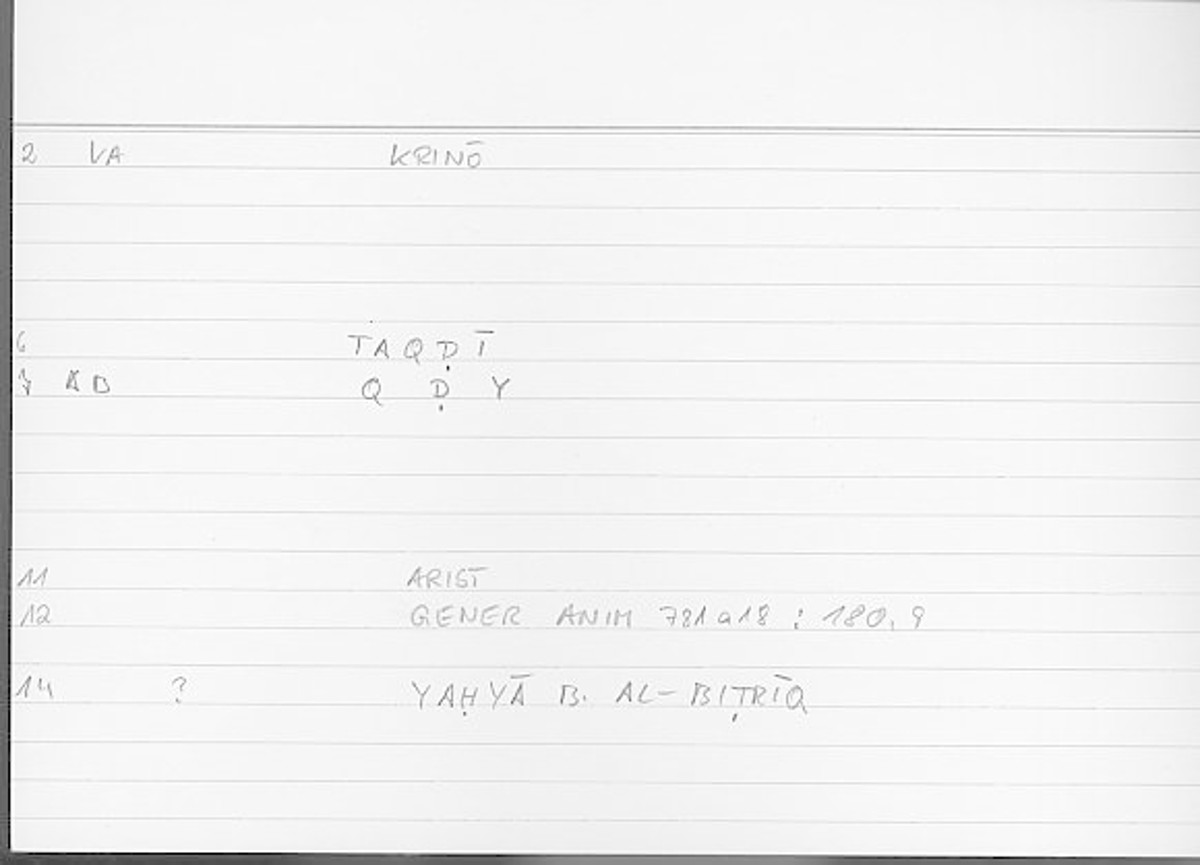 2 VA KRINŌ
6 TAQḌĪ
7 AD Q Ḍ Y
11 ARIST
12 GENER ANIM 781a18 : 180,9
14 ? YAḤYĀ B. AL-BIṬRĪQ